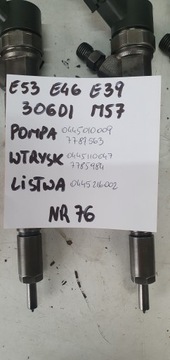 E53 E46 E39
306D1 M57
POMPA 0445010009
7787563
WTRYSK 0445110047
7785984
LISTWA 0445216002
NR 76